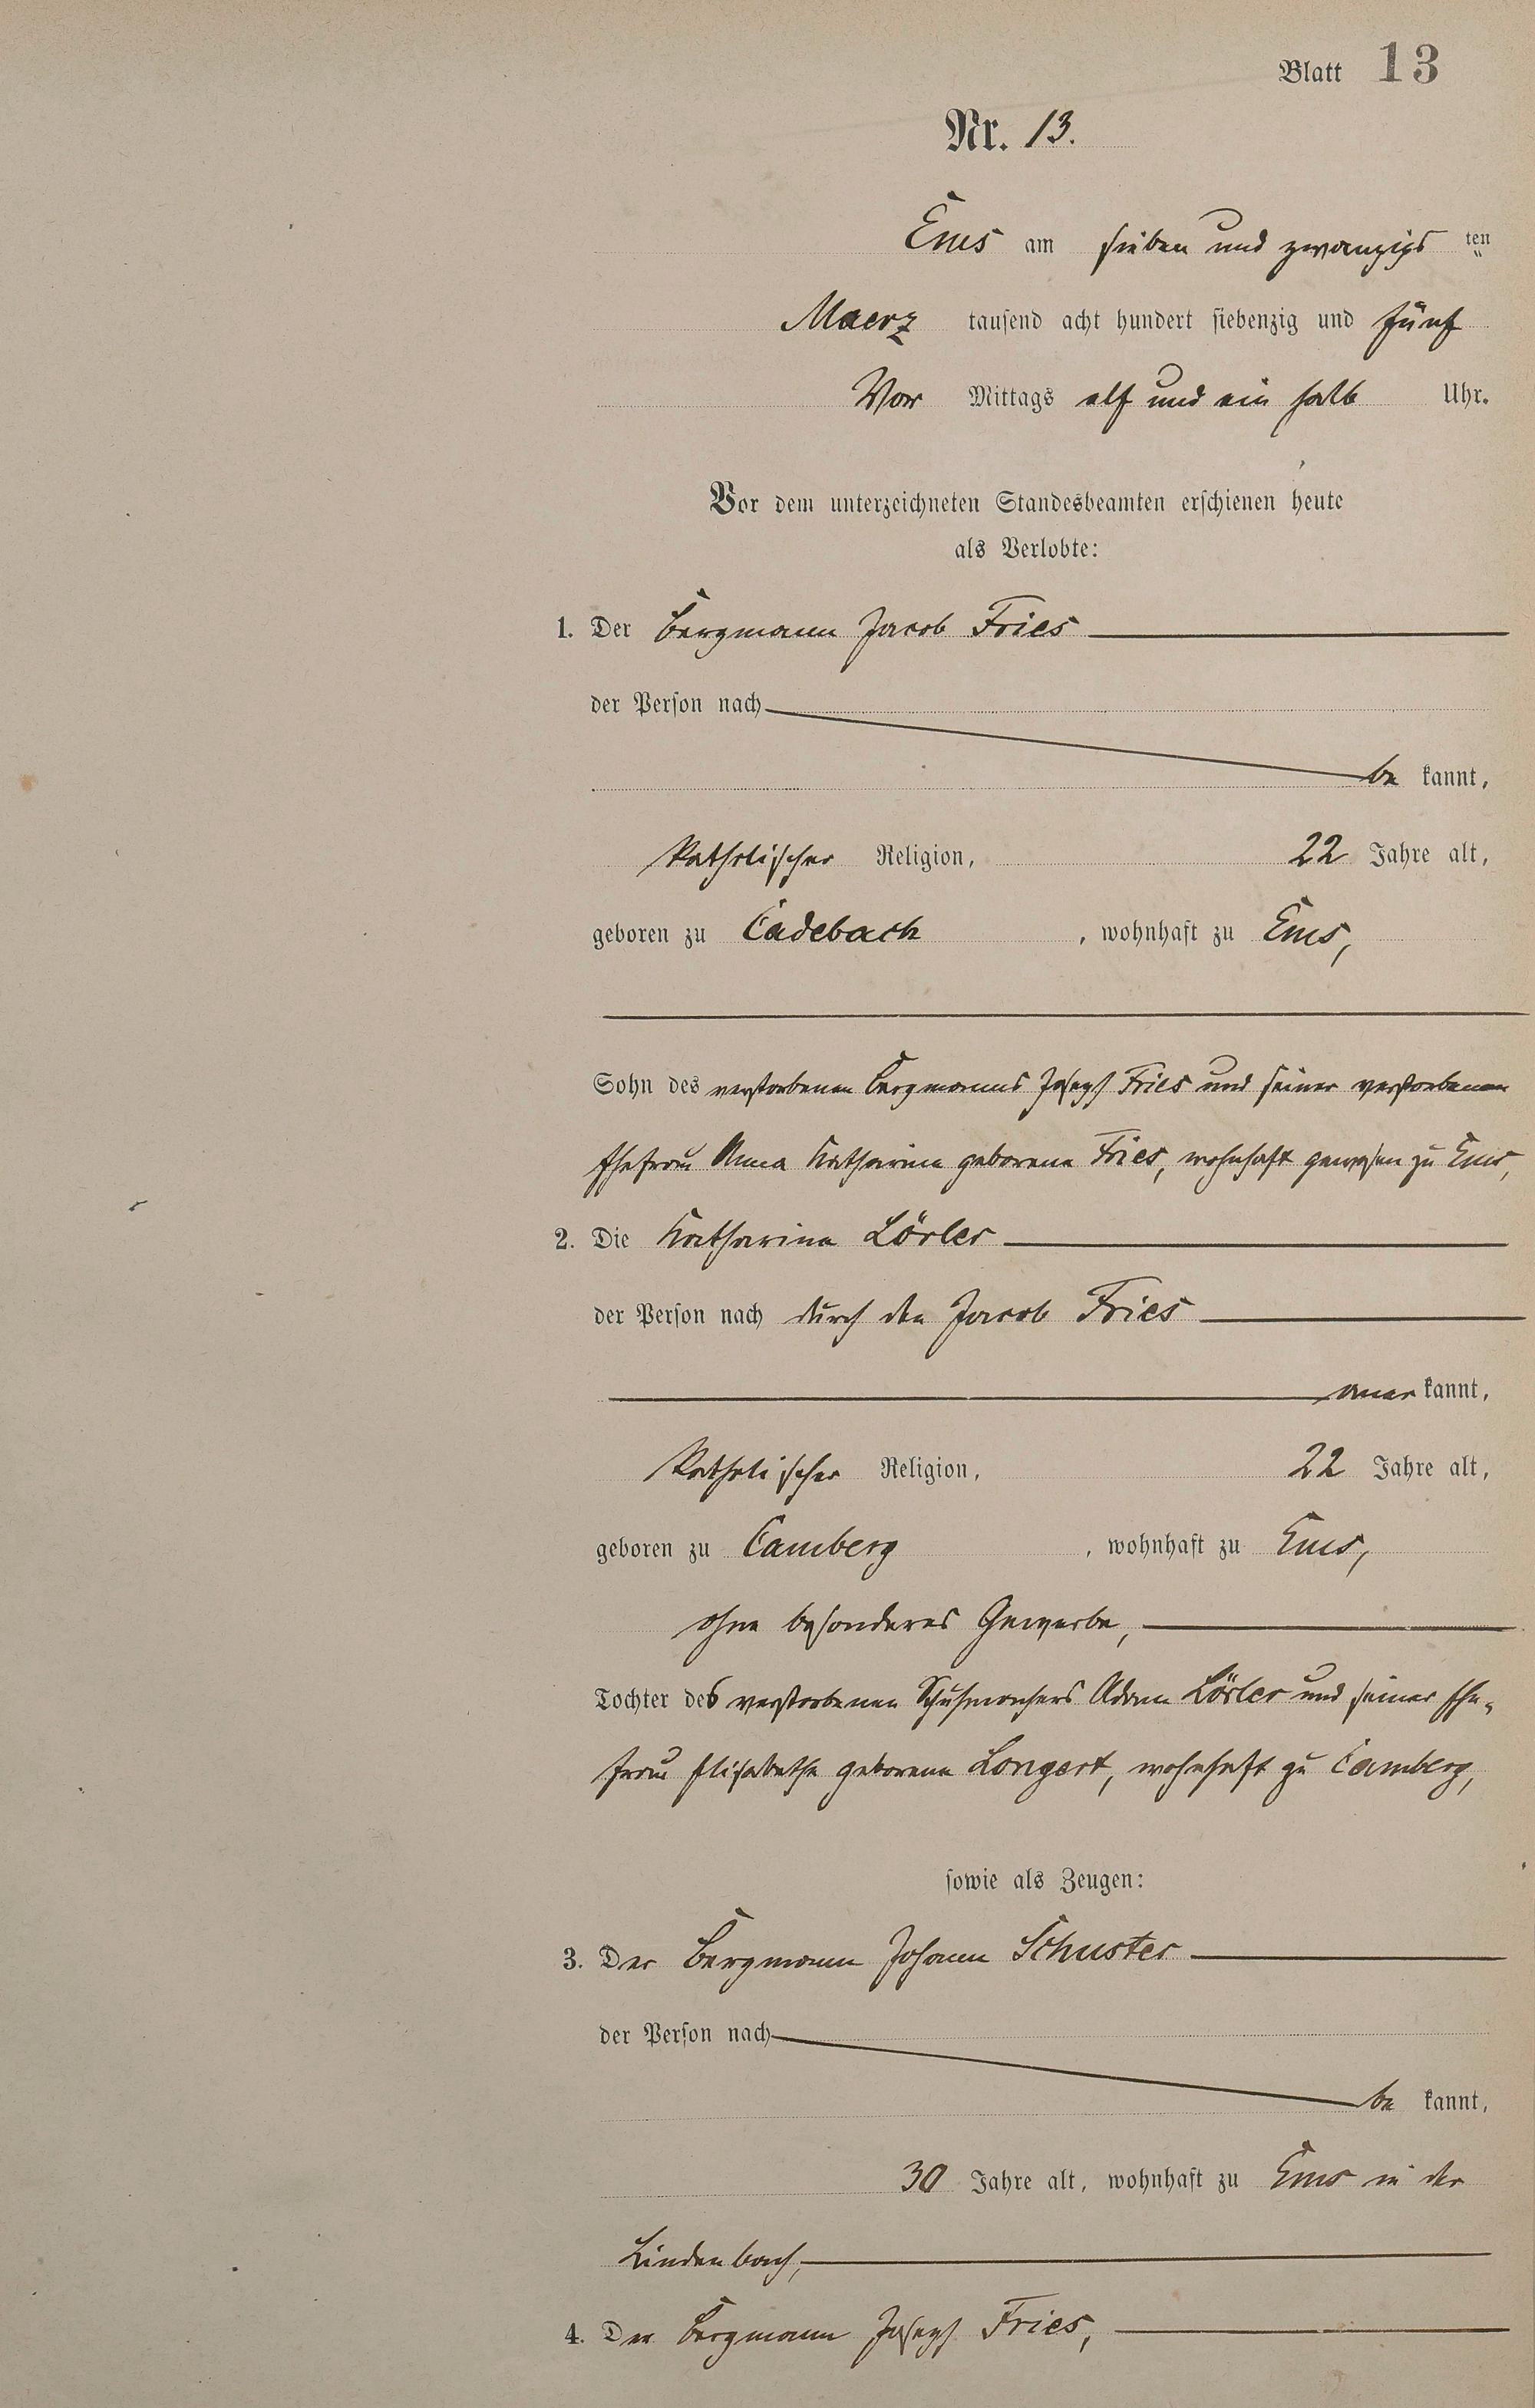 Blatt 13
Nr. 13.
Ems am sieben und zwanzigs ten
Maerz tausend acht hundert siebenzig und fünf
Vor Mittags elf und ein halb Uhr.
Vor dem unterzeichneten Standesbeamten erschienen heute
als Verlobte:
1. Der Bergmann Jacob Fries
der Person nach
be kannt,
katholischer Religion, 22 Jahre alt,
geboren zu Cadebach, wohnhaft zu Ems,
Sohn des verstorbenen Bergmanns Joseph Fries und seiner verstorbenen
Ehefrau Anna Katharina geborene Fries, wohnhaft gewesen zu Ems,
2. Die Katharina Lörler
der Person nach durch den Jacob Fries
aner kannt,
katholischer Religion, 22 Jahre alt,
geboren zu Camberg, wohnhaft zu Ems,
ohne besonderes Gewerbe,
Tochter des verstorbenen Schuhmachers Adam Lörler und seiner Ehe-
frau Elisabethe geborene Longert, wohnhaft zu Camberg,
sowie als Zeugen:
3. Der Bergmann Johann Schuster
der Person nach
be kannt,
30 Jahre alt, wohnhaft zu Ems in der
Lindenbach,
4. Der Bergmann Joseph Fries,